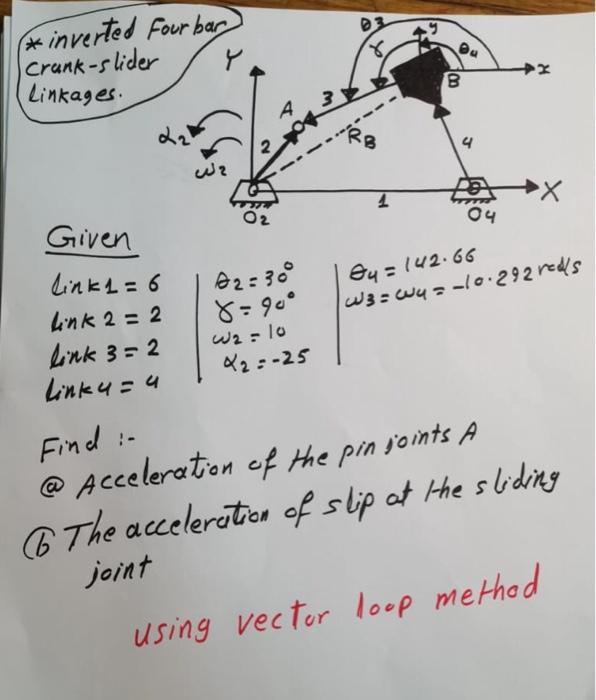 * inverted Four bar
Crank-slider
Linkages.
Y
α2
ω2
A
2
3
RB
θ3
γ
y
θ4
x
B
4
1
X
O2
O4
Given
Link1 = 6
Link 2 = 2
Link 3 = 2
Link 4 = 4
θ2 = 30°
γ = 90°
ω2 = 10
α2 = -25
θ4 = 142.66
ω3 = ω4 = -10.292 rad/s
Find :-
ⓐ Acceleration of the pin joints A
ⓑ The acceleration of slip at the sliding
joint
using vector loop method